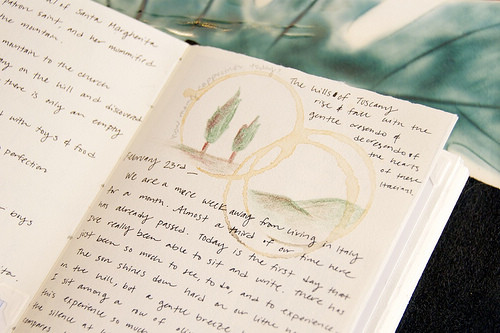 al of Santa Margherita
patron saint and her mummified
the mountain.
mountain to the church
on the hill and discovered
there is only an empty
with toys & food
perfection
boys
The hills of Tuscany
rise & fall with the
gentle cresendo &
decresendo of
the hearts
of these
Italians.
February 23rd —
We are a mere week away from living in Italy
for a month. Almost a third of our time here
has already passed. Today is the first day that
I've really been able to sit and write. There has
just been so much to see, to do, and to experience.
The sun shines down hard on our little
in the hill, but a gentle breeze
I sit among a row of
this experience so much
the silence at
compares